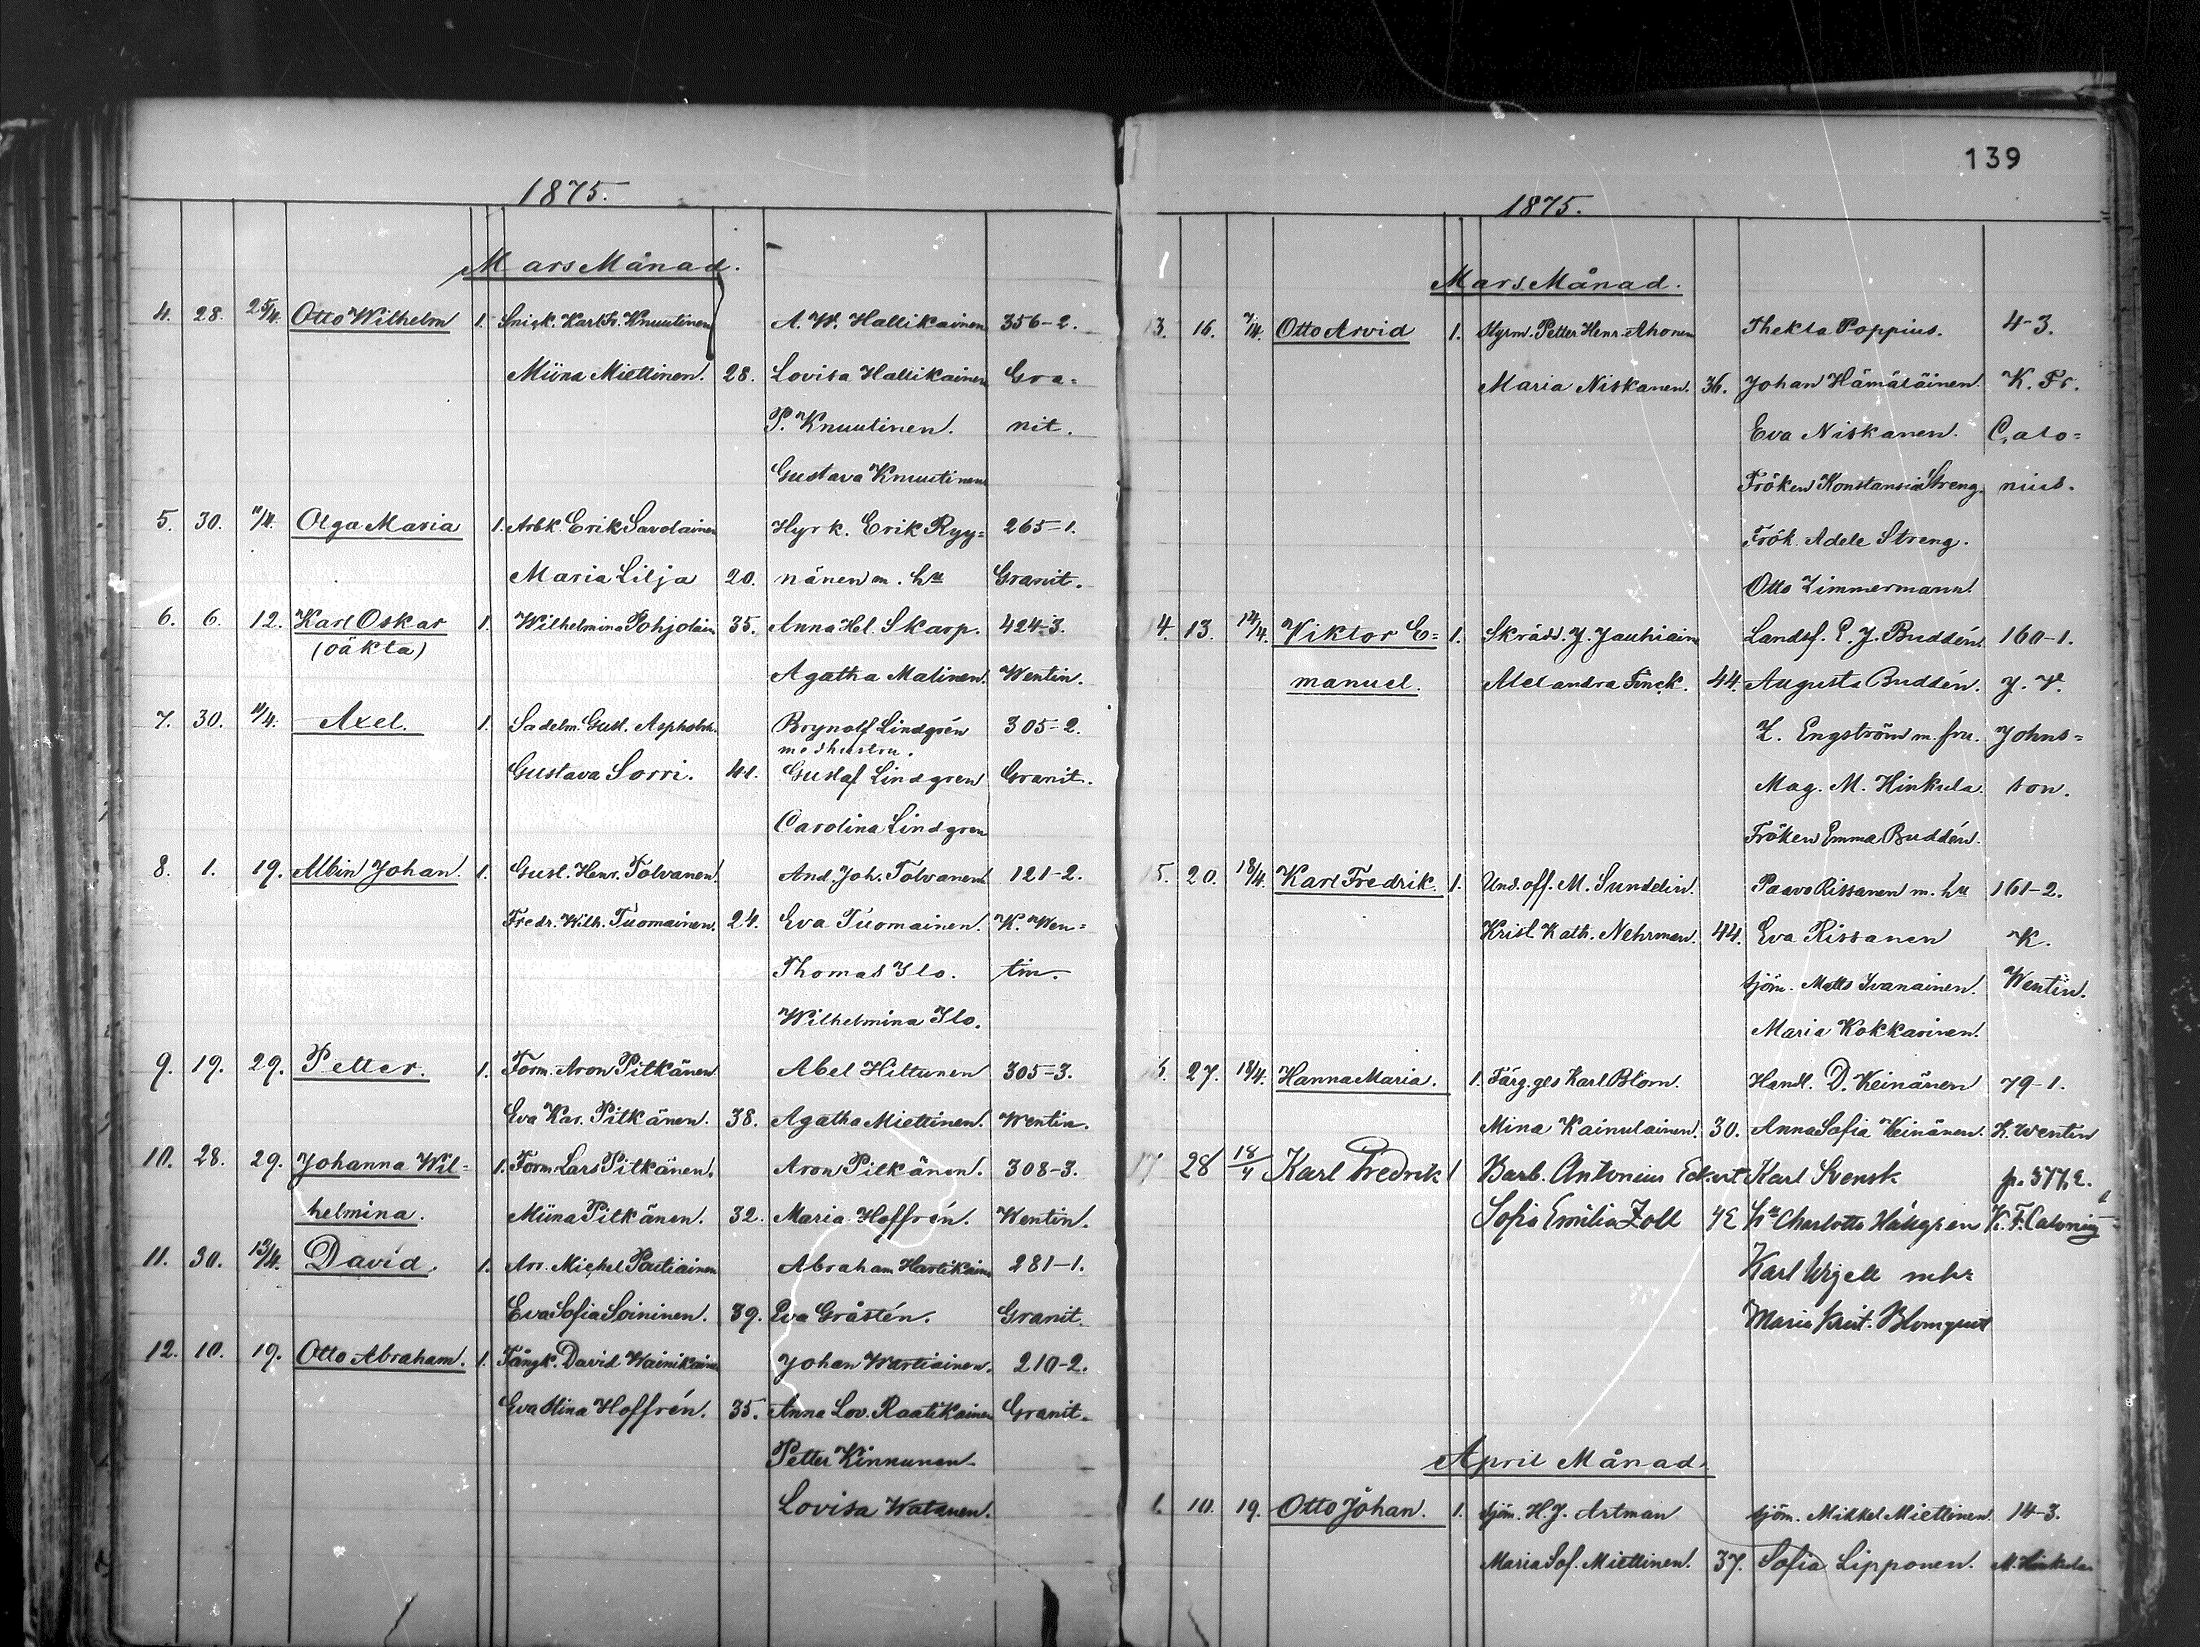 139
1875.
Mars Månad.
4. 28. 25/4. Otto Wilhelm 1. Snick. Karl Fr. Knuutinen A. W. Hallikainen 356-2.
Miina Miettinen. 28. Lovisa Hallikainen Gra=
P. Knuutinen. nit.
Gustava Knuutinen
5. 30. 11/4. Olga Maria 1. Arbk. Erik Savolainen Hyrk. Erik Ryy= 265-1.
Maria Lilja 20. nänen m. hu Granit.
6. 6. 12. Karl Oskar 1. Wilhelmina Pohjolain 35. Anna Hel. Skarp. 424-3.
(oäkta)
Agatha Malinen. Wentin.
7. 30. 11/4. Axel. 1. Sadelm. Gust. Aspholm. Brynolf Lindgrén 305-2.
med hustru.
Gustava Sorri. 41. Gustaf Lindgren Granit.
Carolina Lindgren
8. 1. 19. Albin Johan. 1. Gust. Henr. Tolvanen. And. Joh. Tolvanen 121-2.
Fredr. Wilh. Tuomainen. 24. Eva Tuomainen. K. Wen=
Thomas Ilo. tin.
Wilhelmina Ilo.
9. 19. 29. Petter. 1. Form. Aron Pitkänen Abel Hiltunen 305-3.
Eva Kar. Pitkänen. 38. Agatha Miettinen. Wentin.
10. 28. 29. Johanna Wil= 1. Form. Lars Pitkänen. Aron Pitkänen. 308-3.
helmina. Miina Pitkänen. 32. Maria Hoffrén. Wentin.
11. 30. 13/4. David. 1. Arr. Michel Partiainen Abraham Hartikain 281-1.
Eva Sofia Soininen. 39. Eva Gråstén. Granit.
12. 10. 19. Otto Abraham. 1. Fångk. David Wainikainen Johan Wartiainen. 210-2.
Eva Stina Hoffrén. 35. Anna Lov. Raatikainen Granit.
Petter Kinnunen.
Lovisa Watanen.
1875.
Mars Månad.
13. 16. 7/4. Otto Arvid 1. Styrm. Petter Henr. Ahonen Thekla Poppius. 4-3.
Maria Niskanen. 36. Johan Hämäläinen. K. Fr.
Eva Niskanen. Calo=
Fröken Konstansia Streng. nius.
Frök. Adele Streng.
Otto Zimmermann.
14. 13. 14/4. Viktor E= 1. Skrädd. J. Jauhiain Landsf. E. J. Buddén 160-1.
manuel. Alexandra Finck. 44. Augusta Buddén. J. V.
Z. Engström m. fru. Johns=
Mag. M. Hinkula. son.
Fröken Emma Buddén.
15. 20. 18/4. Karl Fredrik. 1. Und.off. M. Sundelin. Paavo Rissanen m. hu 161-2.
Krist. Kath. Nehrman. 44. Eva Rissanen K.
sjöm. Matts Ivanainen. Wentin.
Maria Kokkarinen.
16. 27. 18/4. Hanna Maria. 1. Färg.ges Karl Blom. Handl. D. Keinänen 79-1.
Mina Kainulainen. 30. Anna Sofia Keinänen. K. Wentin
17 28 18/4 Karl Fredrik 1 Barb. Antonius Eckert Karl Svensk p. 377,2.
Sofia Emilia Zoll 42 hu Charlotta Hällgren K. F. Calonius
Karl Wigell m h
Maria Krist. Blomqvist
April Månad.
1. 10. 19. Otto Johan. 1. sjöm. H. J. Artman sjöm. Mikkel Miettinen 14-3.
Maria Sof. Miettinen. 37. Sofia Lipponen. M. Hinkula